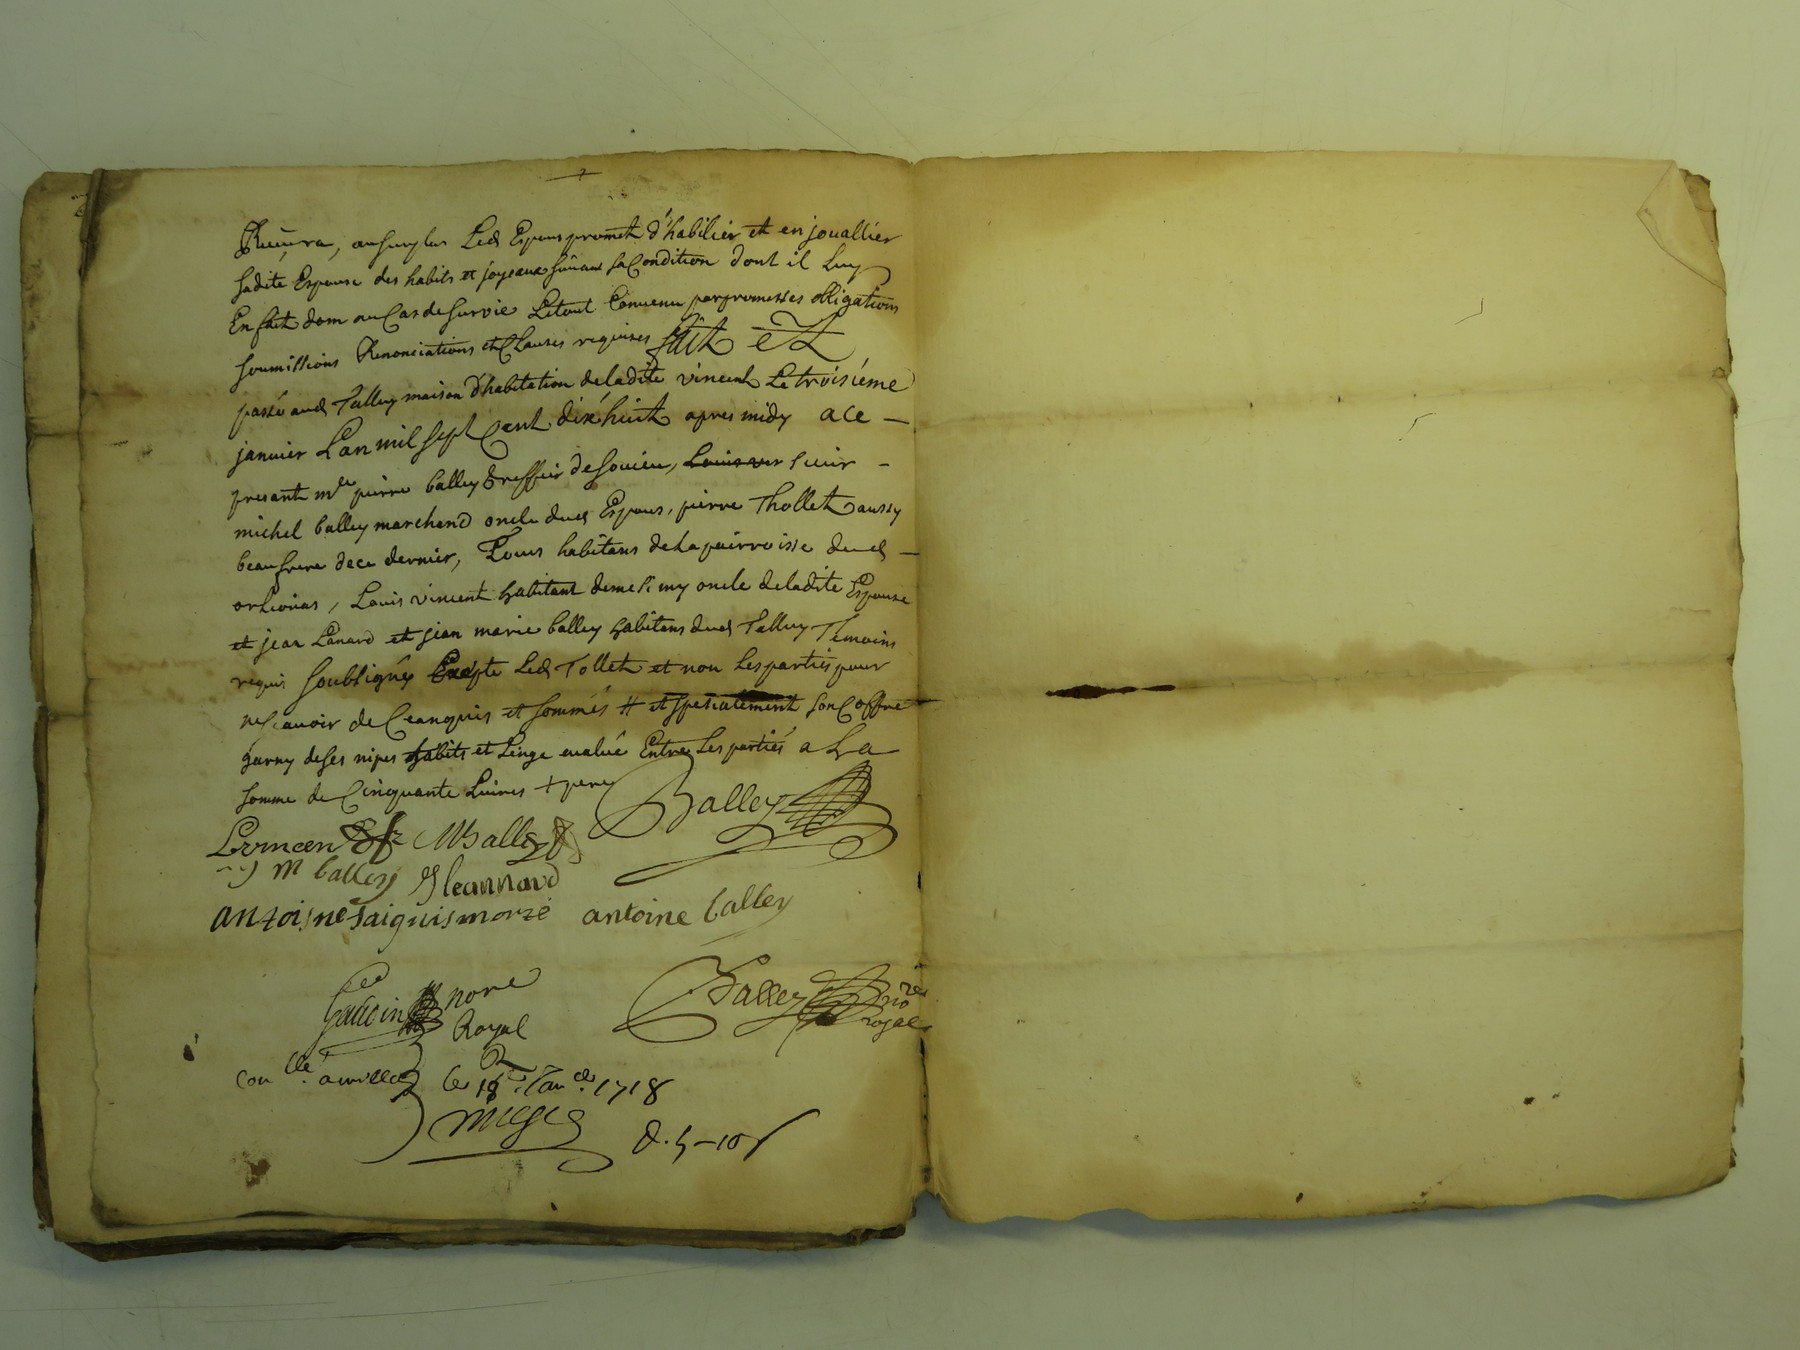 au surplus Led Espoux promet d'habilier et en jouallier
sadite Espouse des habits et joyeaux suivant sa Condition dont il luy
En fait don au Cas de survie Le tout Convenu par promesses obligations
soumissions Renonciations et Clauses requises fait et
passé aud Talluy maison d'habitation de ladite vincent Le troisiéme
janvier L'an mil sept Cent dix huit apres midy a ce —
presant me pierre balley Greffier de soucieu, sieur -
michel balley marchand oncle dud Espoux, pierre Thollet aussy
beaufrere de ce dernier, Tous habitans de la parroisse dud —
orlienas, Louis vincent habitant de messimy oncle de ladite Espouse
et jean Lanard et jean marie balley habitans dud Talluy Temoins
requis soubsignés Exepte Led Tollet et non Les parties pour
ne scavoir de Ce enquis et sommés # et spetialement son Coffre
garny de ses nipes habits et Linge evalué Entre Les parties a La
somme de Cinquante Livres + pere
Balley
MBalley
m balley J leannard
antoine balley
Gaudin nore
Royal
Balley nore
royal
le Janer 1718